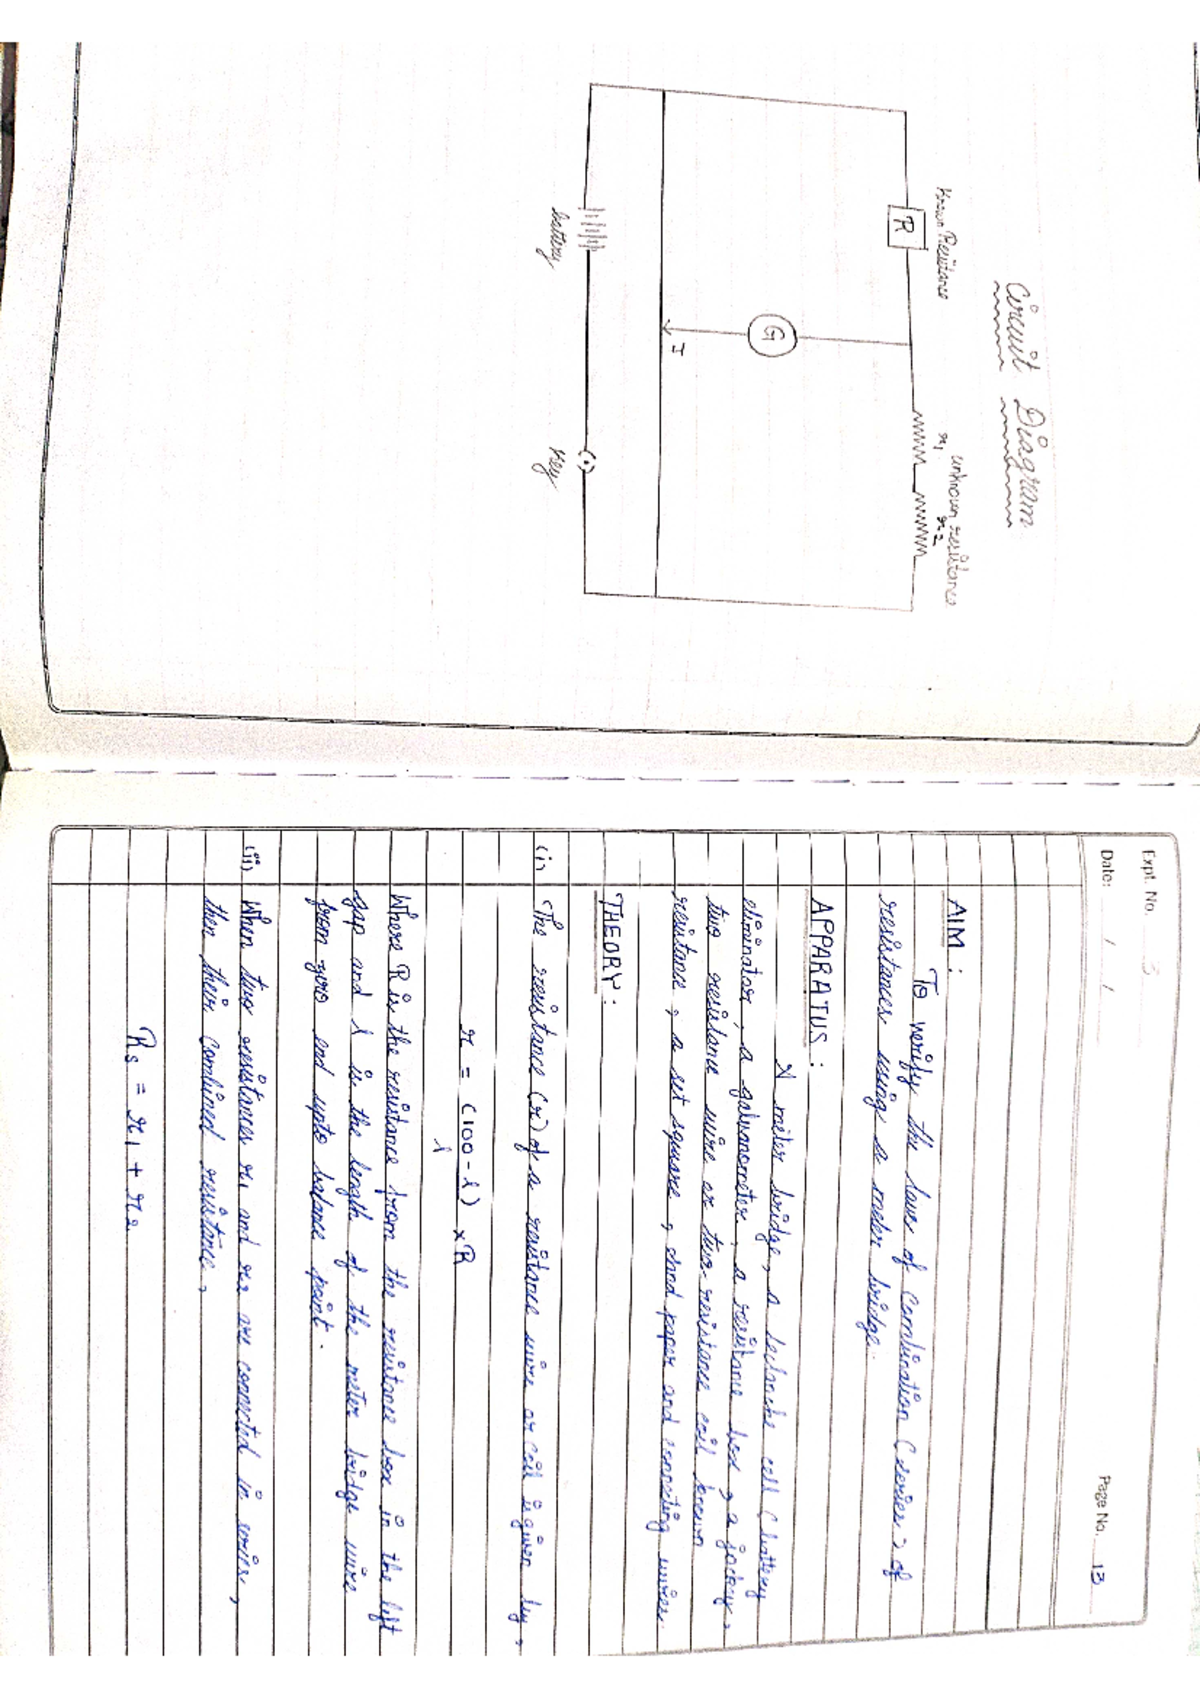 Circuit Diagram
Known Resistance
unknown resistance
R
r1
r2
G
J
battery
Key
Expt. No. 3
Date: / /
Page No. 13
AIM :
To verify the laws of Combination (series) of
resistances using a meter bridge.
APPARATUS :
A meter bridge, a leclanche cell (battery
eliminator, a galvanometer, a resistance box, a jockey,
two resistance wire or two resistance coil known
resistance, a set square, sand paper and connecting wires.
THEORY :
(i) The resistance (r) of a resistance wire or coil is given by,
r = (100 - l) / l × R
Where R is the resistance from the resistance box in the left
gap and l is the length of the meter bridge wire
from zero end upto balance point.
(ii) When two resistances r1 and r2 are connected in series,
then their combined resistance,
Rs = r1 + r2